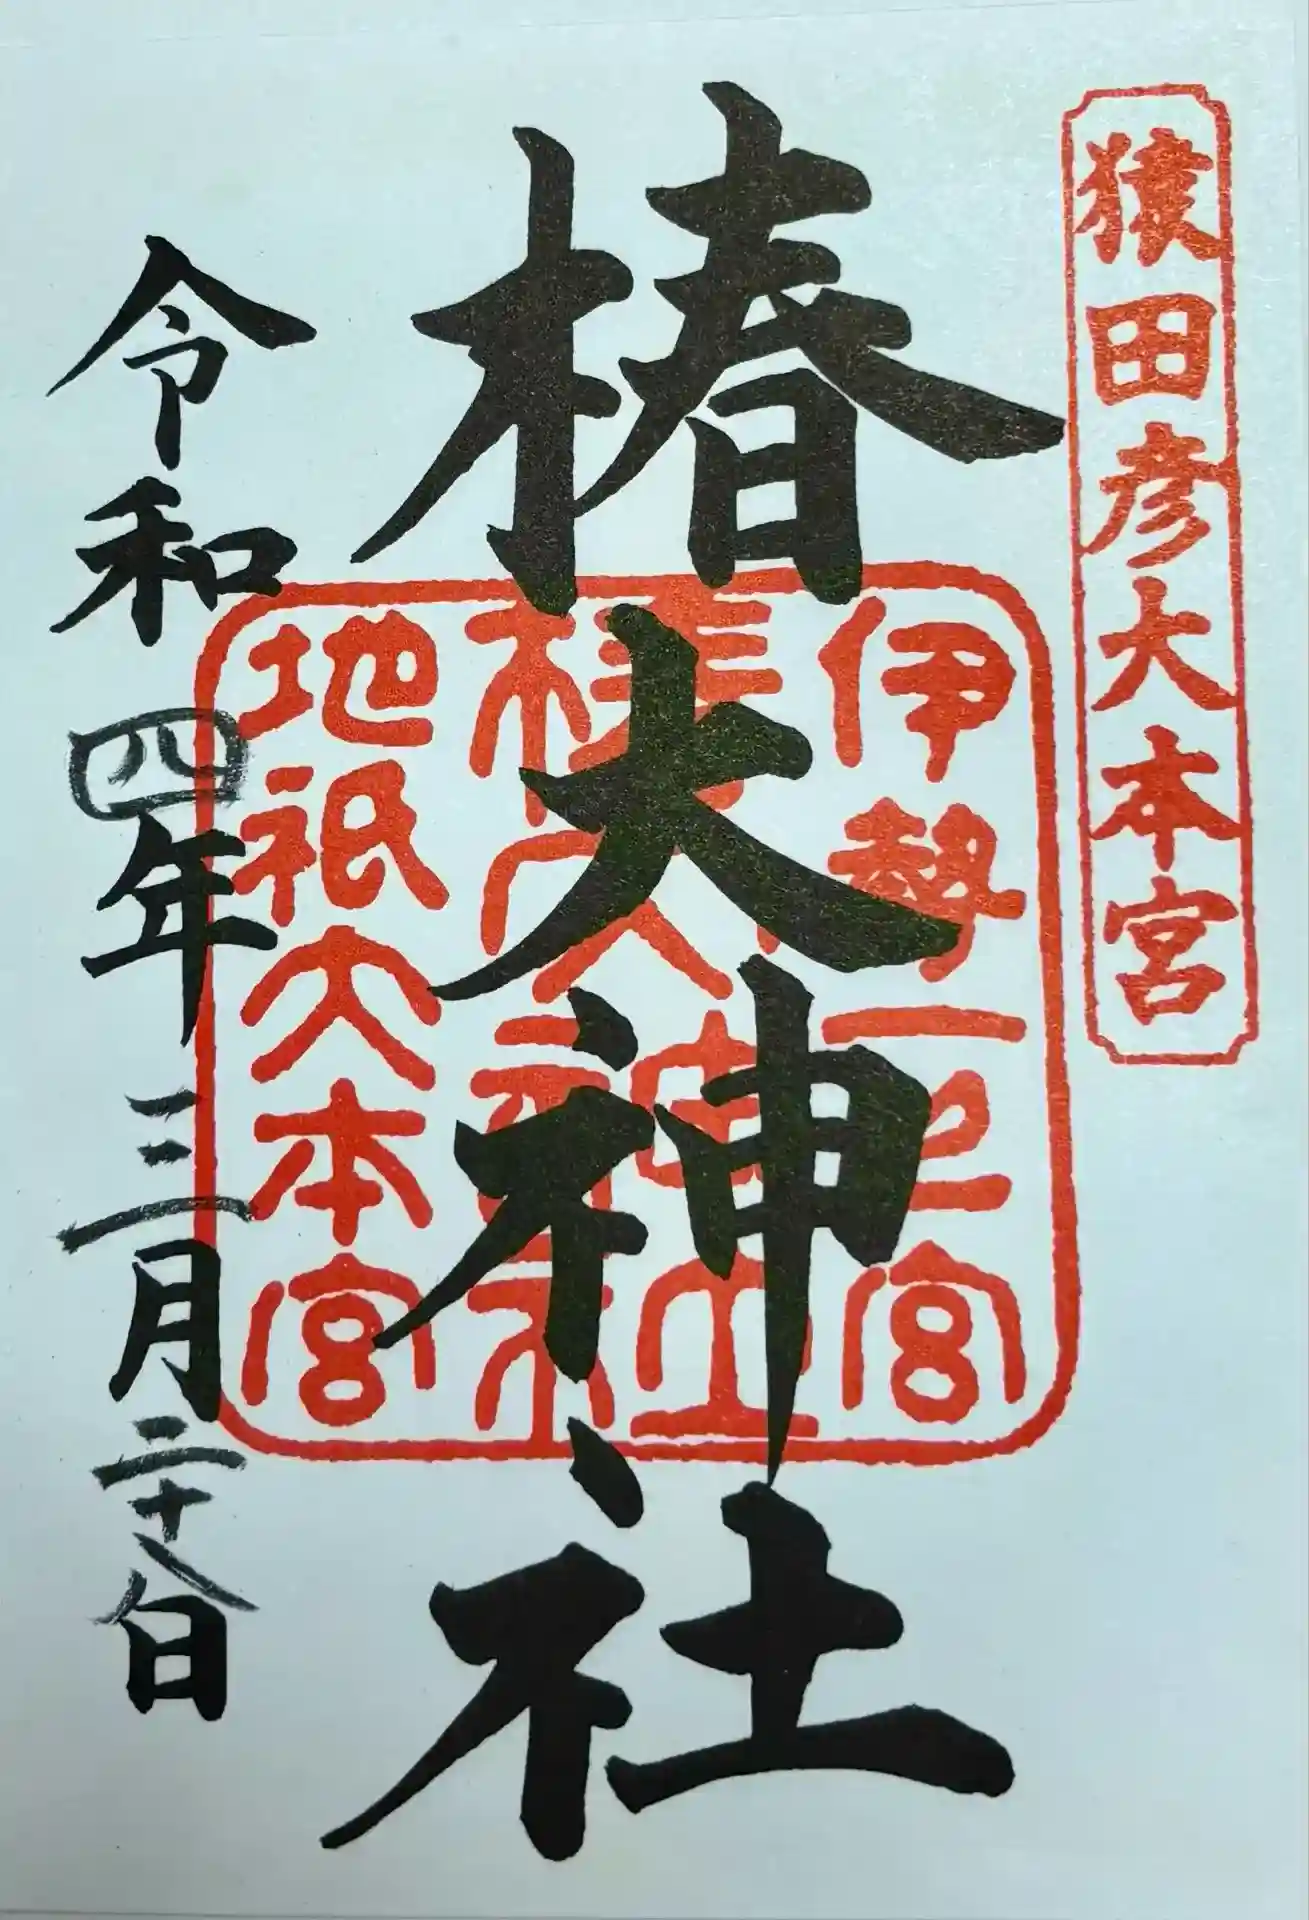 猿田彦大本宮
椿大神社
伊勢一之宮
椿大神社
地祇大本宮
令和四年三月二十八日